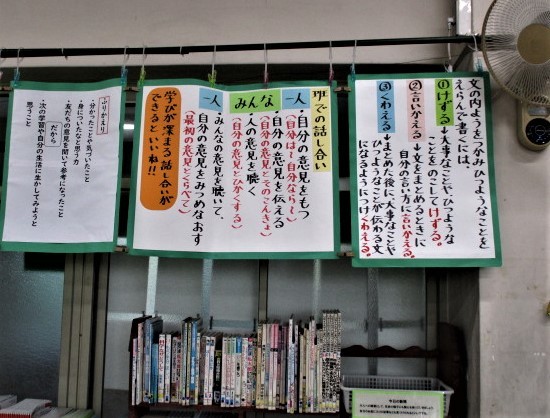 文の内ようをつかみひつようなことを
えらんで書くには、
①けずる→大事なことやひつような
ことをのこしてけずる。
②言いかえる→文をまとめるときに
自分の言い方に言いかえる。
③くわえる→まとめた後に大事なことや
ひつようなことが伝わる文
になるようにつけくわえる。
班での話し合い
一人
・自分の意見をもつ
(自分は〜自分なら〜)
みんな
・自分の意見を伝える
(自分の意見とどこのこんきょ)
・人の意見を聴く
(自分の意見とひかくする)
一人
・みんなの意見を聴いて、
自分の意見をみつめなおす
(最初の意見とくらべて)
学びが深まる話し合いが
できるといいね!!
ふりかえり
・分かったことや気づいたこと
・身についたなと思う力
・友だちの意見を聞いて参考になったこと
だから
・次の学習や自分の生活に生かしてみようと
思うこと